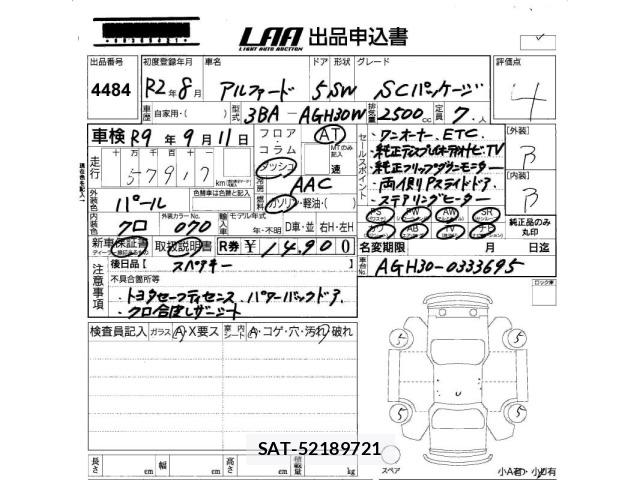 LAA 出品申込書
LIGHT AUTO AUCTION
出品番号 初度登録年月 車名 ドア 形状 グレード 評価点
4484 R2年8月 アルファード 5 SW SCパッケージ 4
車歴 自家用・( ) 型式 3BA-AGH30W 排気量 2500cc 定員 7人
車検 R9年9月11日 フロア AT セールスポイント ・ワンオーナー、ETC. [外装]
走行 十万千百十 コラム MTのみ記入 ・純正ディスプレイオーディオナビ、TV B
57917 km ダッシュ 速 ・純正フリップダウンモニター
冷房 AAC ・両側Pスライドドア. [内装]
外装色 パール 色替車は色替と記入 燃料 ガソリン・軽油・( ) ・ステアリングヒーター B
内装色 クロ 外装カラーNo. 070 輸入車 モデル年式 年・不明 D車・並 右H・左H PS PW AW SR AB TV ナビ 純正品のみ丸印
新車保証書 取扱説明書 R券 ¥14,900 名変期限 月 日迄
後日品【 スペアキー 車台No. AGH30-0333695
注意事項 不具合箇所等 ロック車
・トヨタセーフティセンス、パワーバックドア.
・クロ合皮レザーシート
検査員記入 ガラス(A)・X要ス 室内シート A・コゲ・穴・汚れ・破れ
5 5
5 5
SAT-52189721
長さ cm 幅 cm 高さ cm 積載量 kg スペア 小A有・小U有